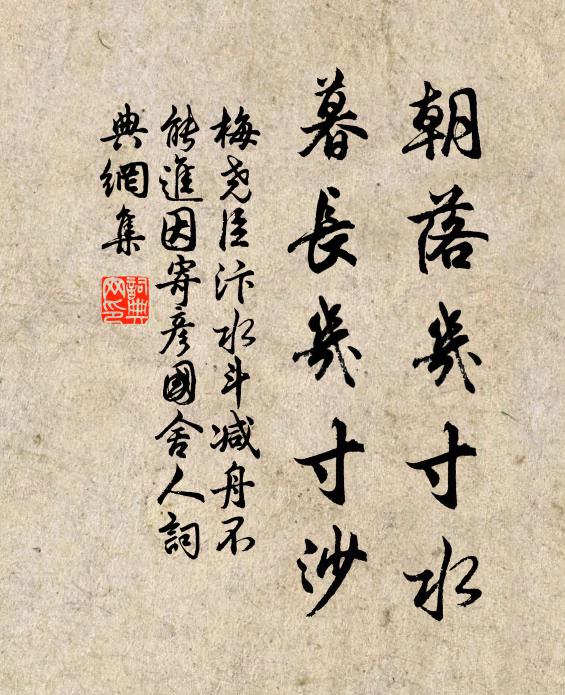 朝落幾寸水
暮長幾寸沙
梅堯臣汴水斗减舟不
能進因寄彥國舍人詞
典網集
詞典
网印